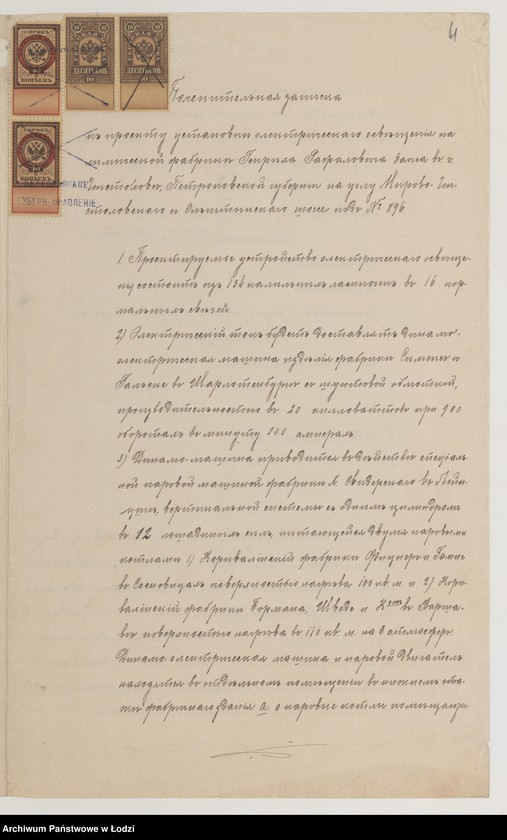 4
СОРОКЪ
40
КОПѢЕКЪ
10
ДЕСЯТЬ КОП.
10
10
ДЕСЯТЬ КОП.
10
СОРОКЪ
40
КОПѢЕКЪ
ГУБЕРН. ПРАВЛЕНІЕ
Пояснительная записка
къ проекту установки электрическаго освѣщенія на
фабрикѣ Генриха
Петроковской губерніи на углу Мирово-
и Ольштынскаго шоссе подъ № 896.
1 Проектируемое устройство электрическаго освѣще-
нія состоитъ изъ 134 калильныхъ лампочекъ въ 16 нор-
мальныхъ свѣчей.
2) Электрическій токъ будетъ доставлять динамо-
электрическая машина издѣлія фабрики Сименсъ и
Гальске въ Шарлотенбургѣ съ шунтовой обмоткой,
производительностью въ 20 килловаттовъ при 900
оборотахъ въ минуту 200 амперахъ.
3) Динамо-машина приводится въ дѣйствіе спеціаль-
ной паровой машиной фабрики Свидерскаго въ Лейп-
цигѣ, вертикальной системы съ однимъ цилиндромъ
въ 12 лошадиныхъ силъ, питающейся двумя паровыми
котлами 1) Корнвалійскій фабрики Фицнеръ и Гампе
въ Сосновицахъ поверхностью нагрѣва 100 кв. м. и 2) Корн-
валійскій фабрики Бормана, Шведе и Ко въ Варша-
вѣ поверхностью нагрѣва въ 110 кв. м. на 6 атмосферъ.
Динамо электрическая машина и паровой двигатель
находятся въ отдѣльномъ помѣщеніи въ нижнемъ эта-
жѣ фабричнаго зданія а, а паровые котлы помѣщаются
Archiwum Państwowe w Łodzi